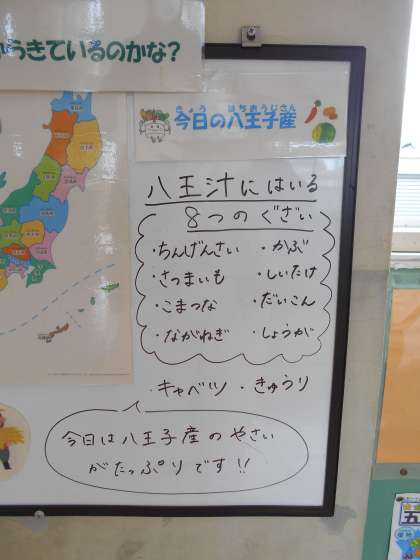 うきているのかな?
きょう はちおうじさん
今日の八王子産
八王汁にはいる
8つのぐざい
・ちんげんさい ・かぶ
・さつまいも ・しいたけ
・こまつな ・だいこん
・ながねぎ ・しょうが
・キャベツ ・きゅうり
今日は八王子産のやさい
がたっぷりです!!
五